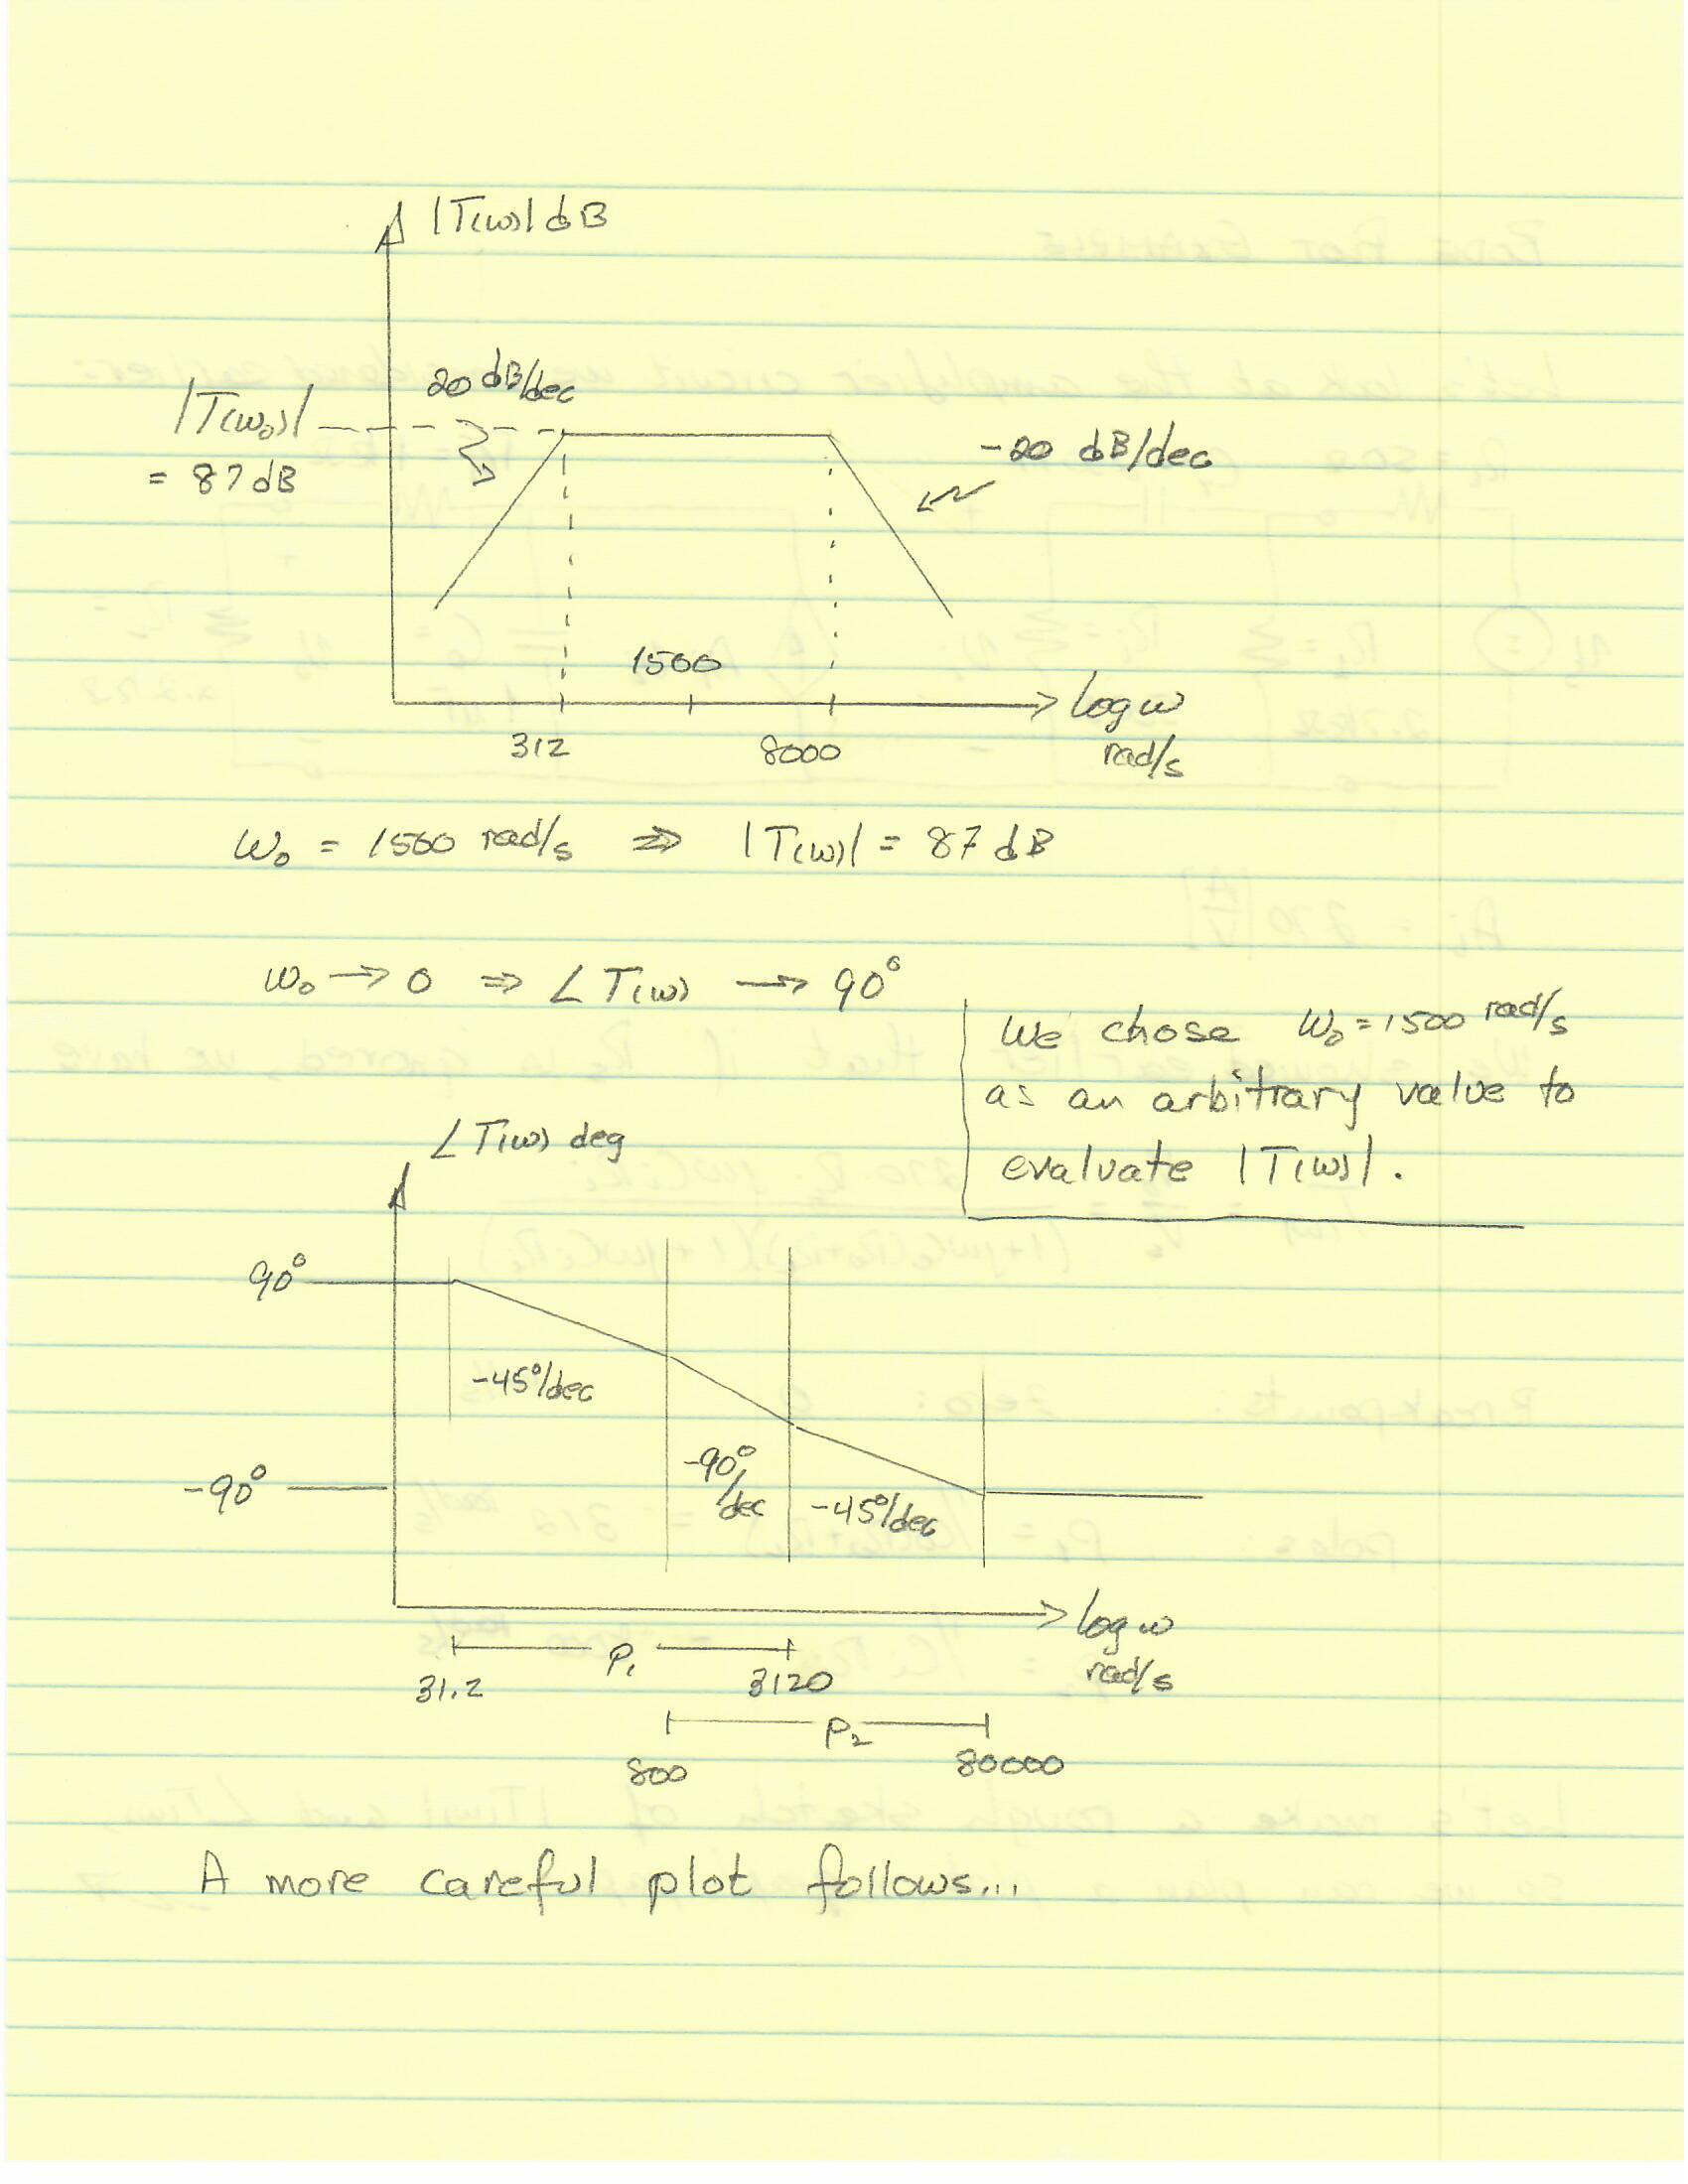 |T(ω)| dB
20 dB/dec
|T(ω₀)|
= 87 dB
-20 dB/dec
1500
log ω
rad/s
312
8000
ω₀ = 1500 rad/s ⇒ |T(ω)| = 87 dB
ω₀ → 0 ⇒ ∠T(ω) → 90°
We chose ω₀ = 1500 rad/s
as an arbitrary value to
evaluate |T(ω)|.
∠T(ω) deg
90°
-45°/dec
-90°/dec
-45°/dec
-90°
log ω
rad/s
P₁
31.2
3120
P₂
800
80000
A more careful plot follows...